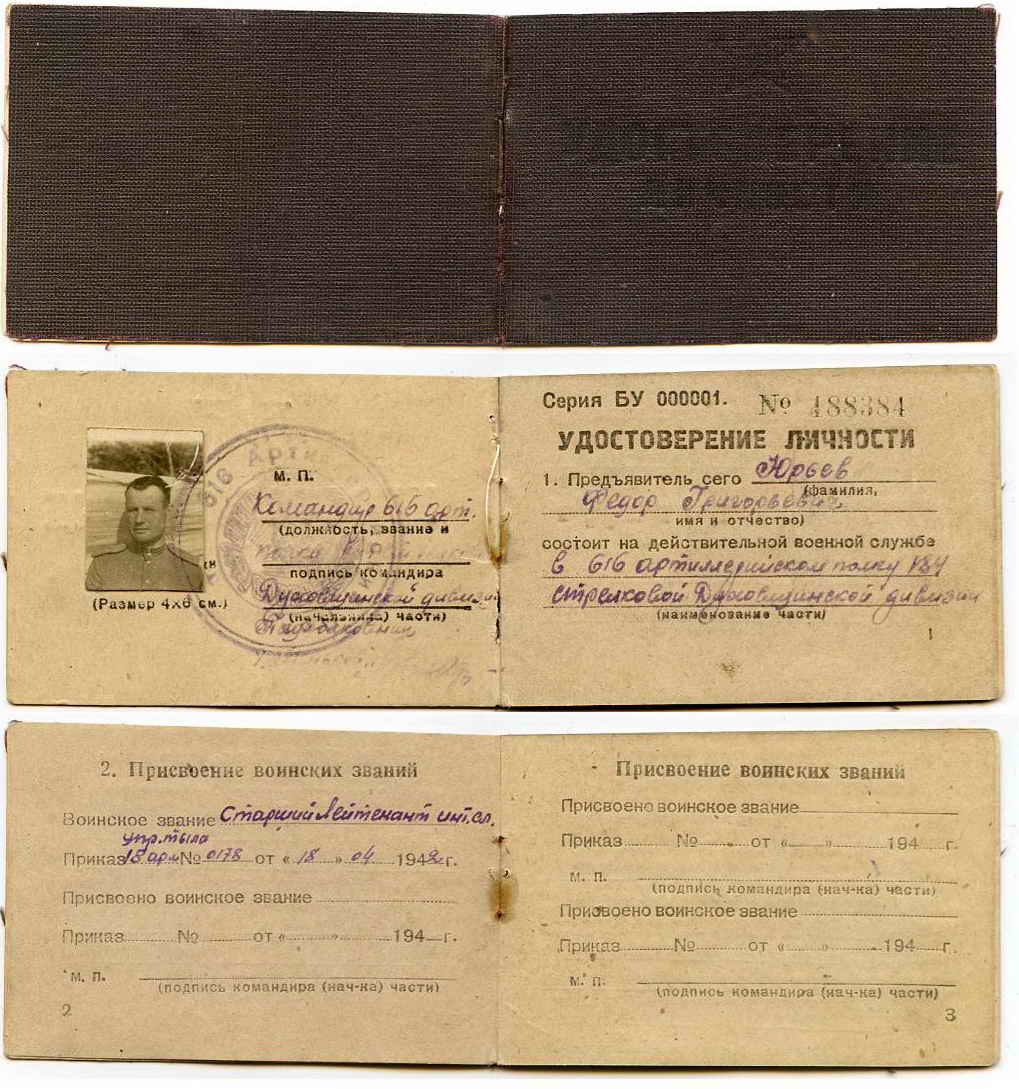 УДОСТОВЕРЕНИЕ
ЛИЧНОСТИ
616 Арти
м. п.
Командир 616 арт.
(должность, звание и
полка
подпись командира
Духовщинской дивизии
(начальника) части)
Подполковник
(Размер 4×6 см.)
Серия БУ 000001. № 488384
УДОСТОВЕРЕНИЕ ЛИЧНОСТИ
1. Предъявитель сего Юрьев
(фамилия,
Федор Григорьевич
имя и отчество)
состоит на действительной военной службе
в 616 артиллерийском полку 184
стрелковой Духовщинской дивизии
(наименование части)
1
2. Присвоение воинских званий
Воинское звание Старший лейтенант инт.сл.
упр.тыла
Приказ 18 арм № 0178 от «18» 04 1942 г.
Присвоено воинское звание
Приказ № от « » 194 г.
м. п.
(подпись командира (нач-ка) части)
2
Присвоение воинских званий
Присвоено воинское звание
Приказ № от « » 194 г.
м. п.
(подпись командира (нач-ка) части)
Присвоено воинское звание
Приказ № от « » 194 г.
м. п.
(подпись командира (нач-ка) части)
3